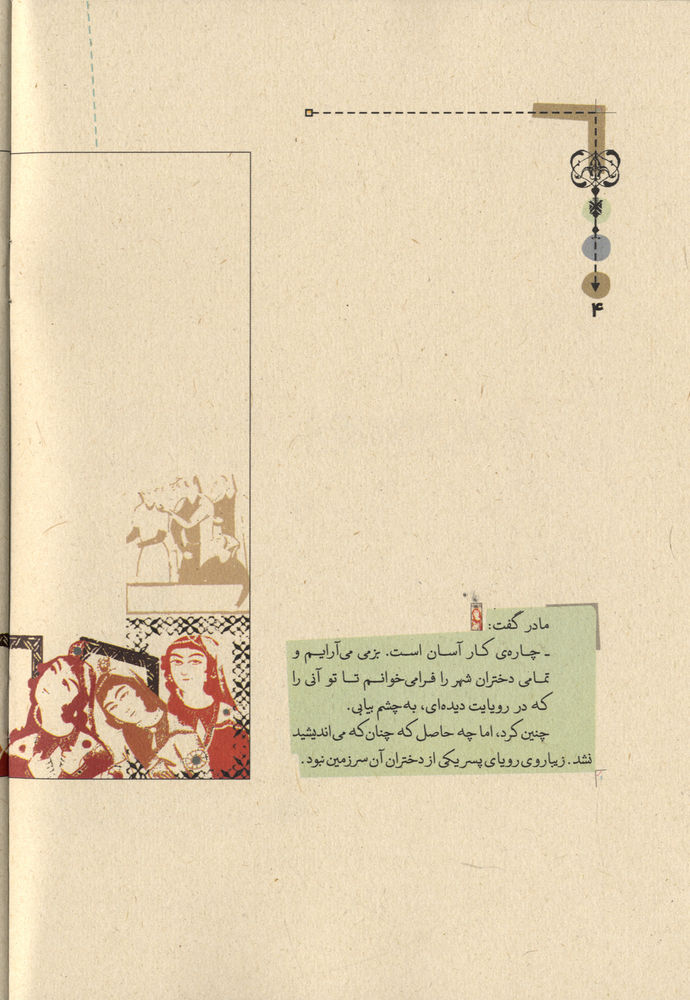 ۴
مادر گفت:
ـ چاره‌ی کار آسان است. بزمی می‌آرایم و
تمامی دختران شهر را فرامی‌خوانم تا تو آنی را
که در رویایت دیده‌ای، به‌چشم بیابی.
چنین کرد، اما چه حاصل که چنان‌که می‌اندیشید
نشد. زیباروی رویای پسر یکی از دختران آن سرزمین نبود.